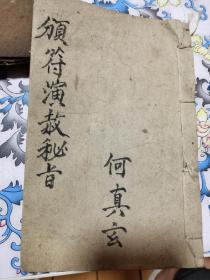 頒符演赦秘旨
何真玄